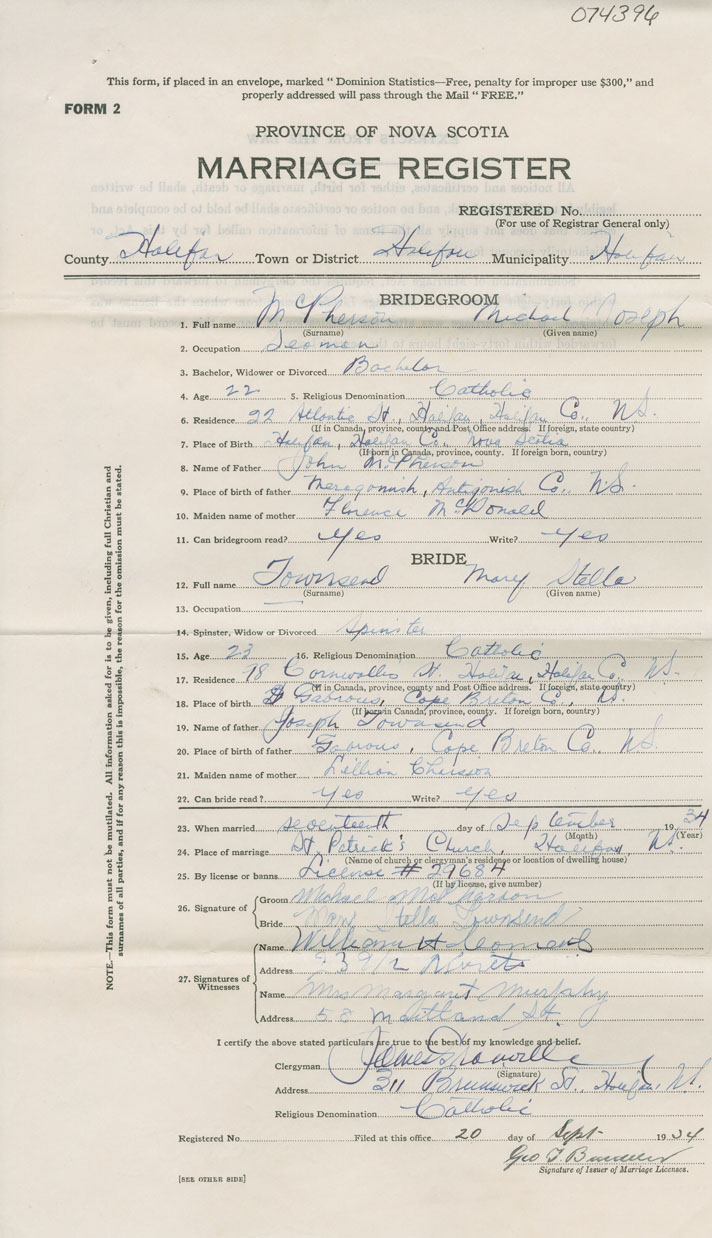 074396
This form, if placed in an envelope, marked " Dominion Statistics—Free, penalty for improper use $300," and
properly addressed will pass through the Mail " FREE."
FORM 2
PROVINCE OF NOVA SCOTIA
MARRIAGE REGISTER
REGISTERED No.
(For use of Registrar General only)
County Halifax Town or District Halifax Municipality Halifax
BRIDEGROOM
1. Full name McPherson Michael Joseph
(Surname) (Given name)
2. Occupation Seaman
3. Bachelor, Widower or Divorced Bachelor
4. Age 22 5. Religious Denomination Catholic
6. Residence 22 Atlantic St., Halifax, Halifax Co., N.S.
(If in Canada, province, county and Post Office address. If foreign, state country)
7. Place of Birth Halifax, Halifax Co., Nova Scotia
(If born in Canada, province, county. If foreign born, country)
8. Name of Father John McPherson
9. Place of birth of father Meragomish, Antigonish Co., N.S.
10. Maiden name of mother Florence McDonald
11. Can bridegroom read? Yes Write? Yes
BRIDE
12. Full name Townsend Mary Stella
(Surname) (Given name)
13. Occupation —
14. Spinster, Widow or Divorced Spinster
15. Age 23 16. Religious Denomination Catholic
17. Residence 78 Cornwallis St. Halifax, Halifax Co., N.S.
(If in Canada, province, county and Post Office address. If foreign, state country)
18. Place of birth Gabrous, Cape Breton Co., N.S.
(If born in Canada, province, county. If foreign born, country)
19. Name of father Joseph Townsend
20. Place of birth of father Gabrous, Cape Breton Co., N.S.
21. Maiden name of mother Lillian Chiasson
22. Can bride read? Yes Write? Yes
23. When married seventeenth day of September 1934
(Month) (Year)
24. Place of marriage St. Patrick's Church, Halifax, N.S.
(Name of church or clergyman's residence or location of dwelling house)
25. By license or banns License # 29684
(If by license, give number)
26. Signature of Groom Michael
Bride Mary Stella Townsend
27. Signatures of Witnesses Name William H
Address
Name Mrs Margaret Murphy
Address 58 Maitland St.
I certify the above stated particulars are true to the best of my knowledge and belief.
Clergyman James
(Signature)
Address 311 Brunswick St., Halifax, N.S.
Religious Denomination Catholic
Registered No. Filed at this office 20 day of Sept 1934
Geo T.
Signature of Issuer of Marriage Licenses.
[SEE OTHER SIDE]
NOTE.—This form must not be mutilated. All information asked for is to be given, including full Christian and
surnames of all parties, and if for any reason this is impossible, the reason for the omission must be stated.